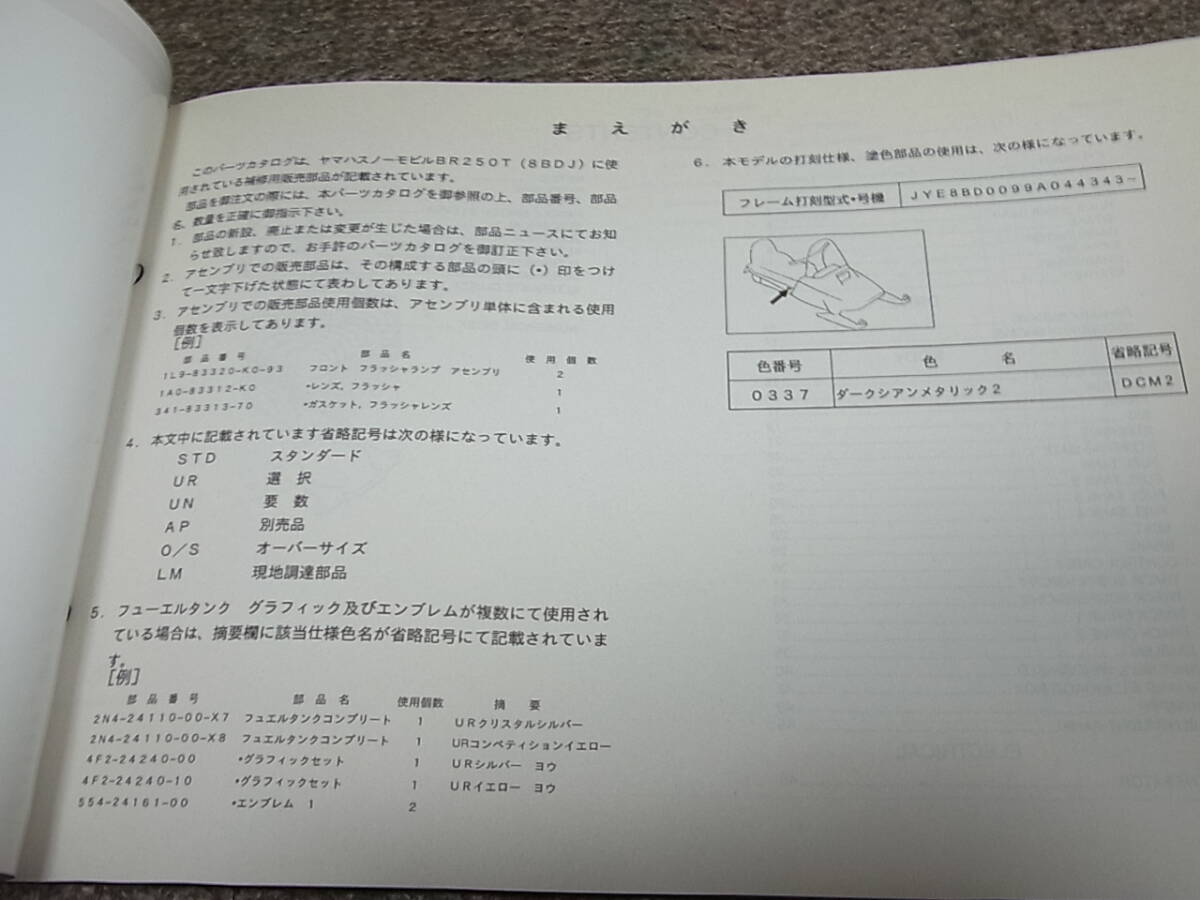 まえがき
このパーツカタログは、ヤマハスノーモビルBR250T(8BDJ)に使
用されている補修用販売部品が記載されています。
部品を御注文の際には、本パーツカタログを御参照の上、部品番号、部品
名、数量を正確に御指示下さい。
1. 部品の新設、廃止または変更が生じた場合は、部品ニュースにてお知
らせ致しますので、お手許のパーツカタログを御訂正下さい。
2. アセンブリでの販売部品は、その構成する部品の頭に(•)印をつけ
て一文字下げた状態にて表わしてあります。
3. アセンブリでの販売部品使用個数は、アセンブリ単体に含まれる使用
個数を表示してあります。
[例]
部品番号 部品名 使用個数
1L9-83320-K0-93 フロント フラッシャランプ アセンブリ 2
1A0-83312-K0 •レンズ,フラッシャ 1
341-83313-70 •ガスケット,フラッシャレンズ 1
4. 本文中に記載されています省略記号は次の様になっています。
STD スタンダード
UR 選択
UN 要数
AP 別売品
O/S オーバーサイズ
LM 現地調達部品
5. フューエルタンク グラフィック及びエンブレムが複数にて使用され
ている場合は、摘要欄に該当仕様色名が省略記号にて記載されていま
す。
[例]
部品番号 部品名 使用個数 摘要
2N4-24110-00-X7 フュエルタンクコンプリート 1 URクリスタルシルバー
2N4-24110-00-X8 フュエルタンクコンプリート 1 URコンペティションイエロー
4F2-24240-00 •グラフィックセット 1 URシルバー ヨウ
4F2-24240-10 •グラフィックセット 1 URイエロー ヨウ
554-24161-00 •エンブレム 1 2
6. 本モデルの打刻仕様、塗色部品の使用は、次の様になっています。
フレーム打刻型式•号機 JYE8BD0099A044343~
色番号 色名 省略記号
0337 ダークシアンメタリック2 DCM2